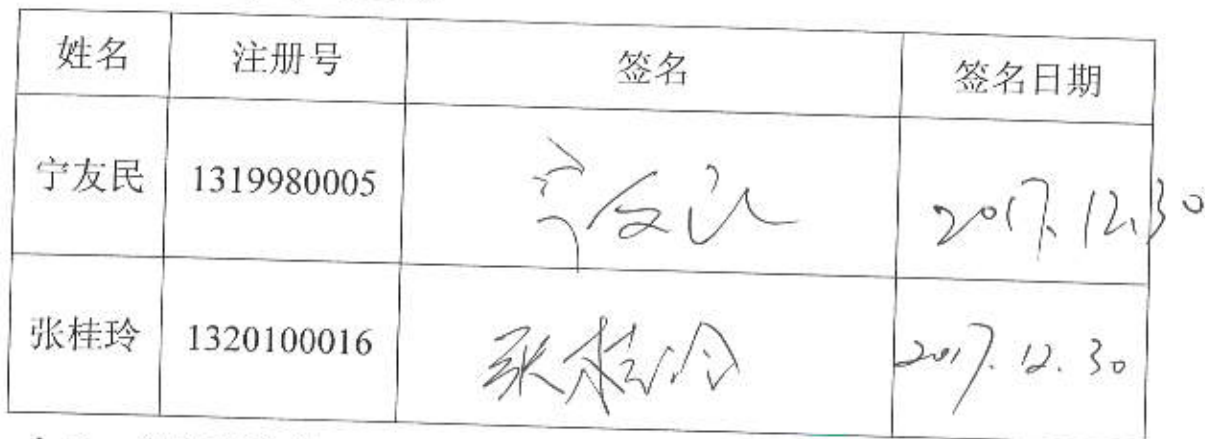 姓名 注册号 签名 签名日期
宁友民 1319980005 宁友民 2017.12.30
张桂玲 1320100016 张桂玲 2017.12.30